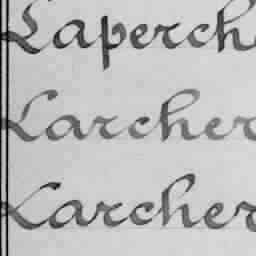 Laperche
Larcher
Larcher